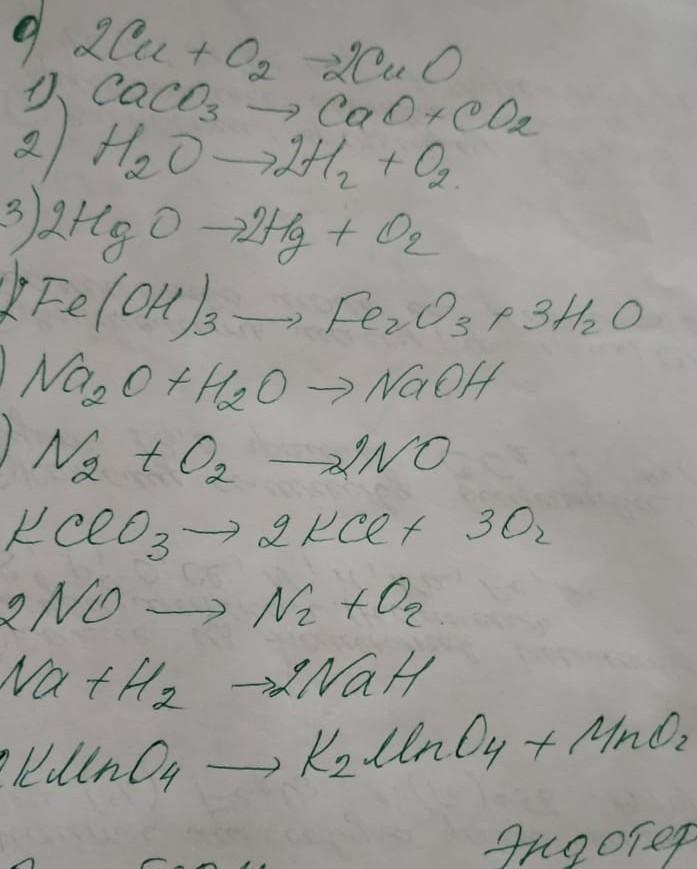 0) 2Cu + O₂ → 2CuO
1) CaCO₃ → CaO + CO₂
2) H₂O → 2H₂ + O₂
3) 2HgO → 2Hg + O₂
) 2Fe(OH)₃ → Fe₂O₃ + 3H₂O
) Na₂O + H₂O → NaOH
) N₂ + O₂ → 2NO
KClO₃ → 2KCl + 3O₂
2NO → N₂ + O₂
Na + H₂ → 2NaH
2KMnO₄ → K₂MnO₄ + MnO₂
Эндотер